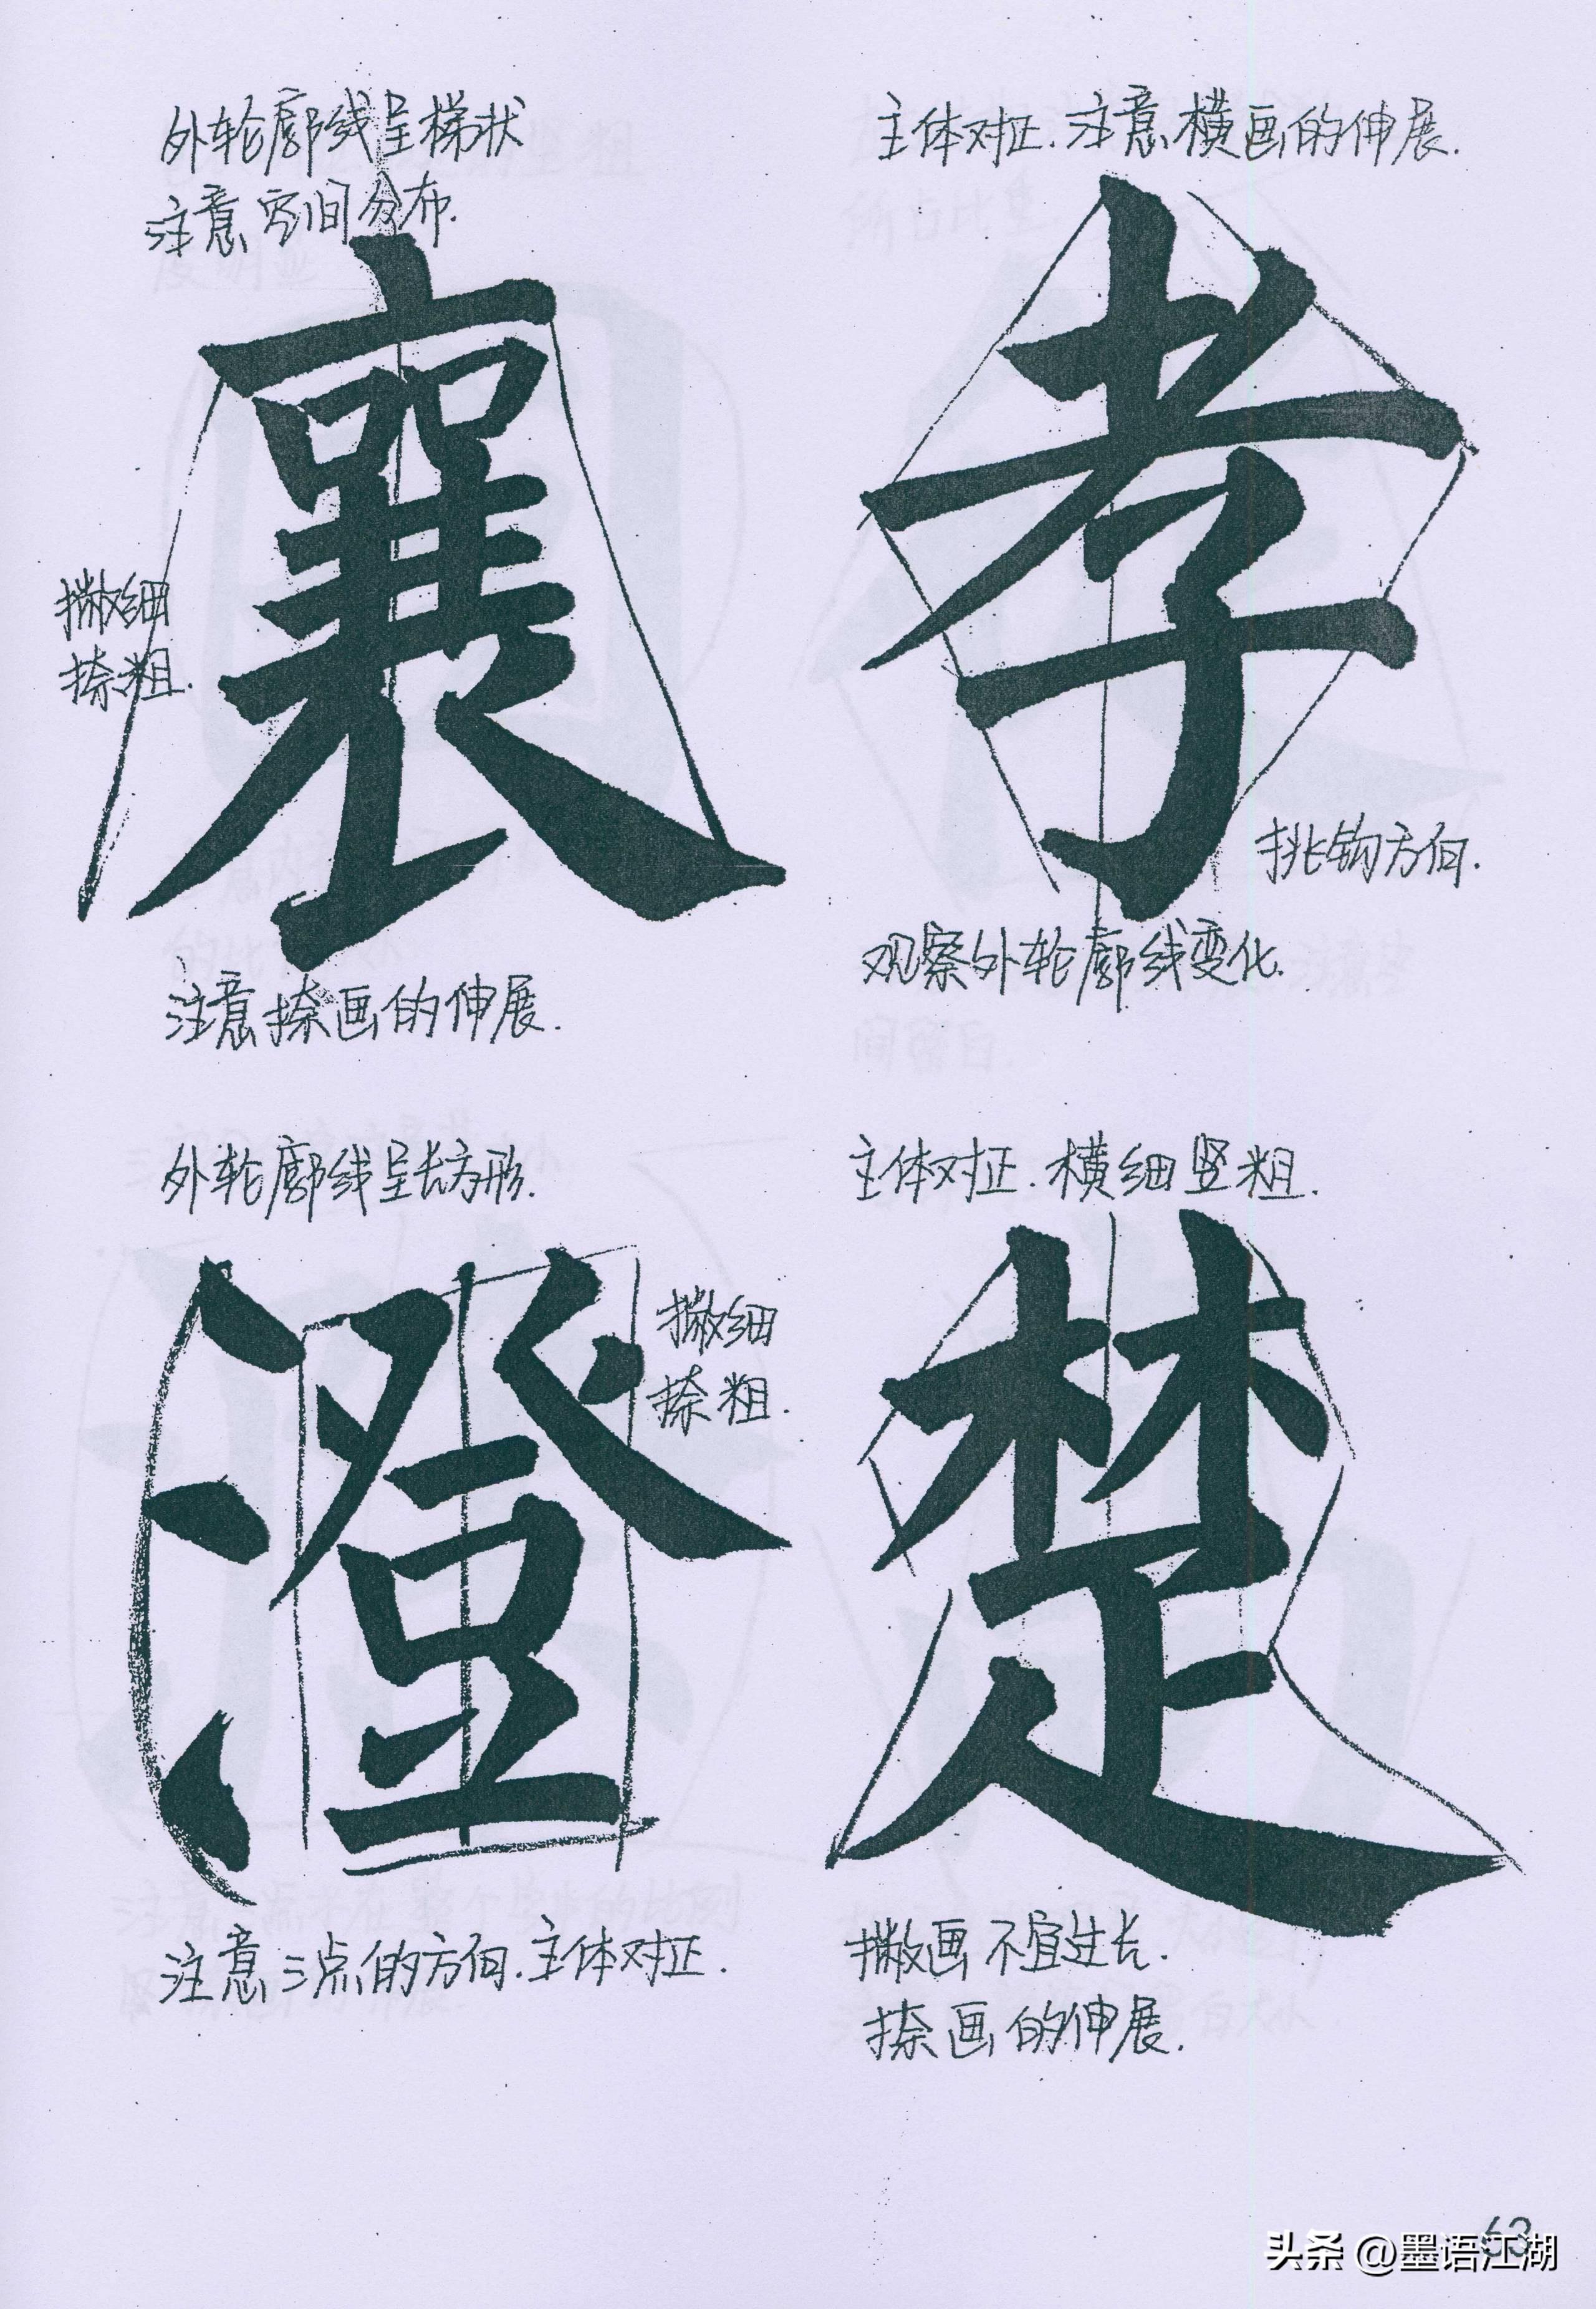 外轮廓线呈梯状
注意空间分布.
襄
撇细
捺粗.
注意捺画的伸展.
主体对正.注意横画的伸展.
孝
挑钩方向.
观察外轮廓线变化.
外轮廓线呈长方形.
澄
撇细
捺粗.
注意三点的方向.主体对正.
主体对正.横细竖粗.
楚
撇画不宜过长.
捺画的伸展.
63
头条 @墨语江湖